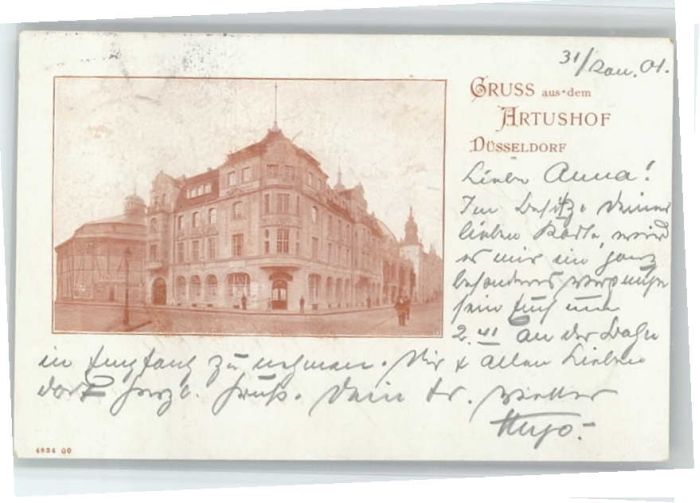 31/Jan. 01.
GRUSS aus dem
ARTUSHOF
DÜSSELDORF
Liebe Anna!
Im Besitze Deiner
lieben Karte, wird
es mir ein ganz
besonderes Vergnügen
sein Euch um
2.41 an der Bahn
in Empfang zu nehmen. Dir & allen Lieben
dort herzl. Gruß. Dein tr. Vetter
Hugo.-
4834 00